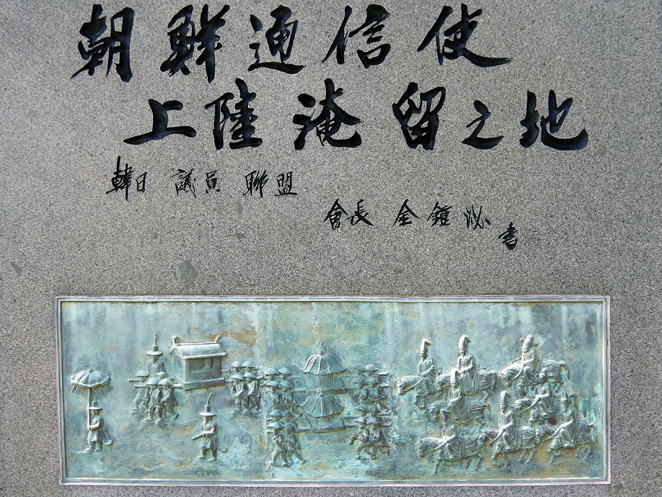 朝鮮通信使
上陸淹留之地
韓日 議員 聯盟
會長 金鍾泌
書